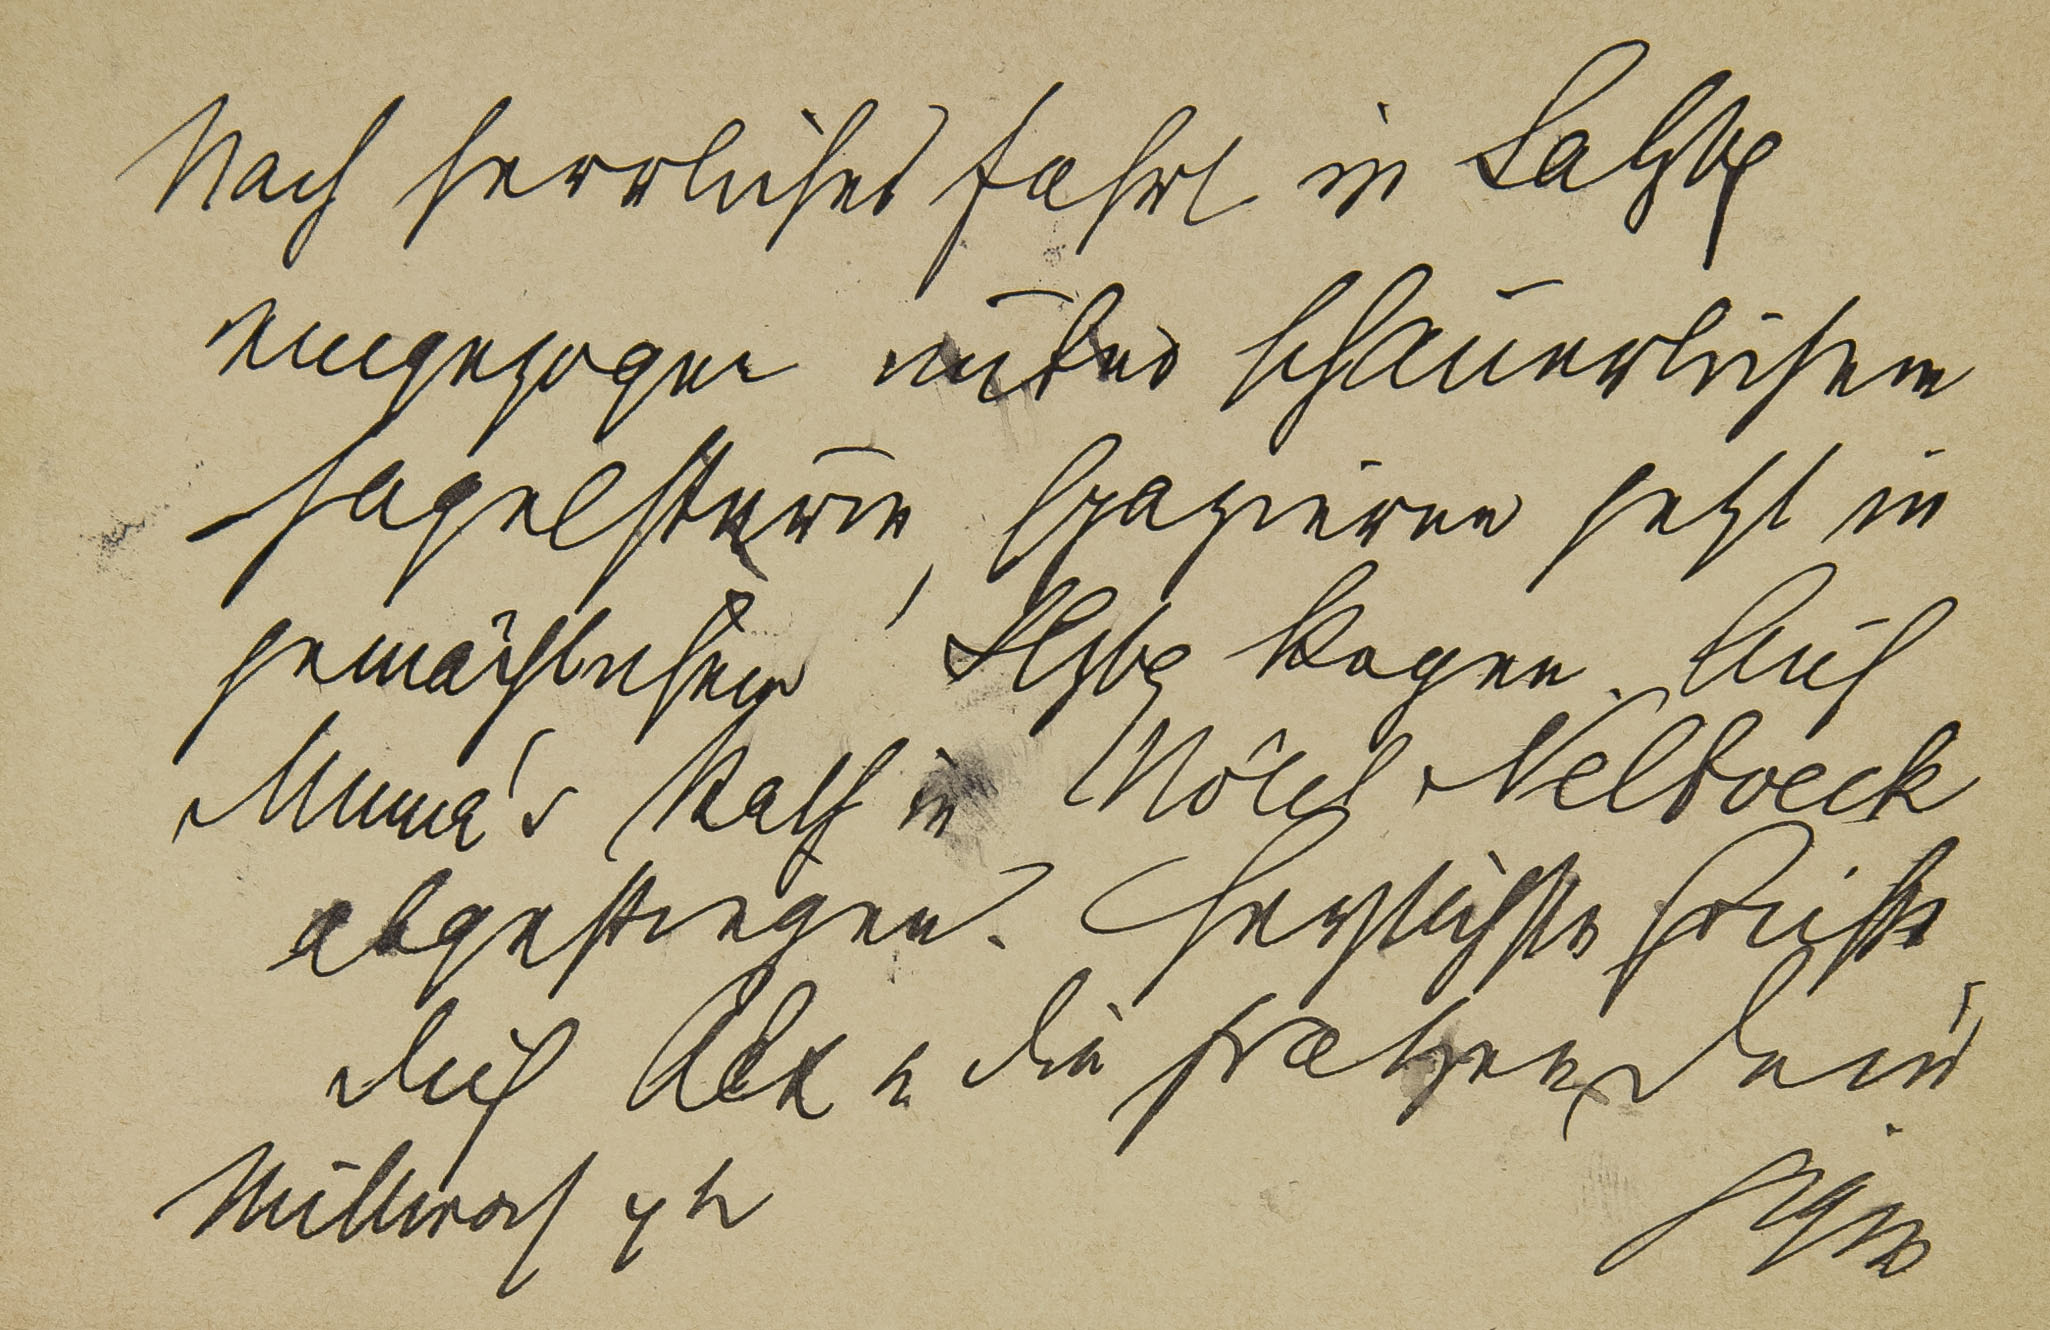 Nach herrlicher Fahrt in Salzbg
eingezogen unter schauerlichem
Hagelsturm, spazieren jetzt in
gemächlichem Slzbg Regen. Auf
Mama's Rath in Hôtel Nelboeck
abgestiegen. Herzlichste Grüße
Dich Alex u die Fratzen, Dein
Mittwoch 4h